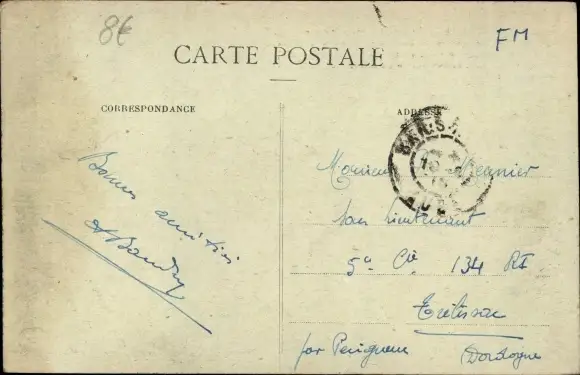 8€
FM
CARTE POSTALE
CORRESPONDANCE
ADRESSE
Bonnes amitiés
A Baudry
Monsieur Meunier
sous lieutenant
5e Cie 134 RI
Trélissac
par Perigueux
Dordogne